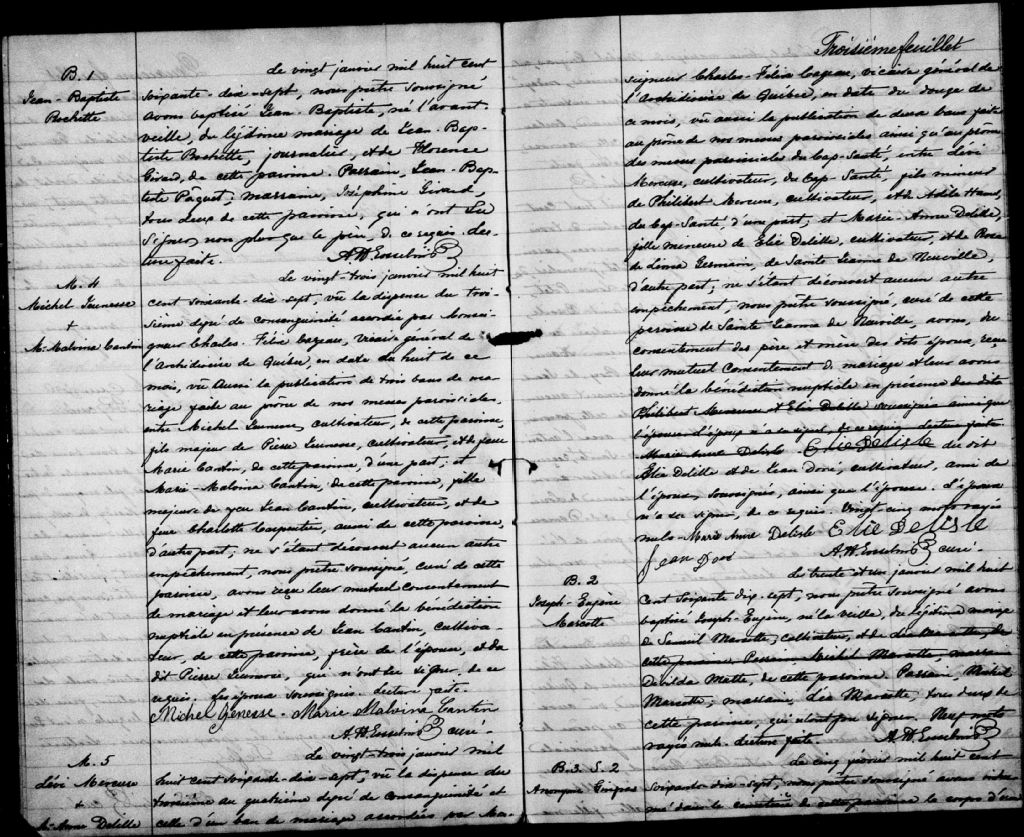 B. 1
Jean-Baptiste
Rochette
Le vingt janvier mil huit cent
soixante-dix-sept, nous prêtre soussigné
avons baptisé Jean-Baptiste, né l'avant
veille, du légitime mariage de Jean-Bap-
tiste Rochette, journalier, et de Florence
Girard, de cette paroisse. Parrain, Jean-Bap-
tiste Pâquet; marraine, Joséphine Girard,
tous deux de cette paroisse, qui n'ont su
signer, non plus que le père, de ce requis. Lec-
ture faite.
M. 4
Michel Jeunesse
+
M. Malvina Cantin
Le vingt-trois janvier mil huit
cent soixante-dix-sept, vu la dispense du troi-
sième degré de consanguinité accordée par Monsei-
gneur Charles-Félix Cazeau, vicaire général de
l'Archidiocèse de Québec, en date du huit de ce
mois, vu aussi la publication de trois bans de ma-
riage faite au prône de nos messes paroissiales,
entre Michel Jeunesse, cultivateur, de cette paroisse
fils majeur de Pierre Jeunesse, cultivateur, et de feue
Marie Cantin, de cette paroisse, d'une part; et
Marie-Malvina Cantin, de cette paroisse, fille
majeure de feu Jean Cantin, cultivateur, et de
feue Charlotte Carpentier, aussi de cette paroisse,
d'autre part; ne s'étant découvert aucun autre
empêchement, nous prêtre soussigné, curé de cette
paroisse, avons reçu leur mutuel consentement
de mariage et leur avons donné la bénédiction
nuptiale en présence de Jean Cantin, cultiva-
teur, de cette paroisse, frère de l'épouse, et du
dit Pierre Jeunesse, qui n'ont su signer, de ce
requis. Les époux soussignés. Lecture faite.
Michel Genesse - Marie Malvina Cantin
curé.
M. 5
Lévi Mercure
+
M. Anne Delisle
Le vingt-trois janvier mil
huit cent soixante-dix-sept, vu la dispense du
troisième au quatrième degré de consanguinité et
celle d'un ban de mariage accordées par Mon-
Troisième feuillet
seigneur Charles-Félix Cazeau, vicaire général de
l'Archidiocèse de Québec, en date du douze de
ce mois, vu aussi la publication de deux bans faite
au prône de nos messes paroissiales ainsi qu'au prône
des messes paroissiales du Cap-Santé, entre Lévi
Mercure, cultivateur, du Cap-Santé, fils mineur
de Philibert Mercure, cultivateur, et de Adèle
du Cap-Santé, d'une part; et Marie-Anne Delisle,
fille mineure de Elie Delisle, cultivateur, et de Rose
de Lima Germain, de Sainte Jeanne de Neuville,
d'autre part; ne s'étant découvert aucun autre
empêchement, nous prêtre soussigné, curé de cette
paroisse de Sainte Jeanne de Neuville, avons, du
consentement des père et mère des dits époux, reçu
leur mutuel consentement de mariage et leur avons
donné la bénédiction nuptiale en présence des dits
Philibert Mercure et Elie Delisle soussignés ainsi que
l'épouse. L'époux n'a su signer, de ce requis. Lecture faite
Marie Anne Delisle - Elie Delisle du dit
Elie Delisle et de Jean Doré, cultivateur, ami de
l'époux, soussignés, ainsi que l'épouse. L'époux
n'a su signer, de ce requis. Vingt-cinq mots rayés
nuls. Marie Anne Delisle Elie Delisle
Jean Doré
curé.
B. 2
Joseph-Eugène
Marcotte
Le trente et un janvier mil huit
cent soixante-dix-sept, nous prêtre soussigné avons
baptisé Joseph-Eugène, né la veille, du légitime mariage
de Samuel Marcotte, cultivateur, et de Lea Marcotte, de
cette paroisse. Parrain, Michel Marcotte, marrai
Matte, de cette paroisse. Parrain, Michel
Marcotte; marraine, Lea Marcotte, tous deux de
cette paroisse, qui n'ont pu signer. Neuf mots
rayés nuls. Lecture faite.
B. 3. S. 2
Anonyme Gingras
Le cinq février mil huit cent
soixante-dix-sept, nous prêtre soussigné avons inhu-
mé dans le cimetière de cette paroisse le corps d'un